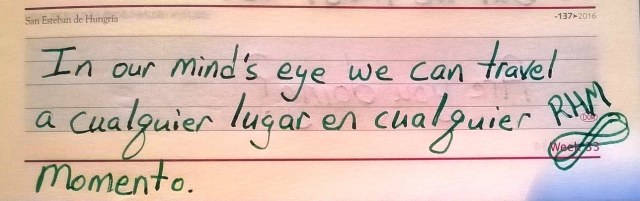 San Esteban de Hungría
-137▸2016
In our mind's eye we can travel
a cualquier lugar en cualquier RHM
Week 33
momento.